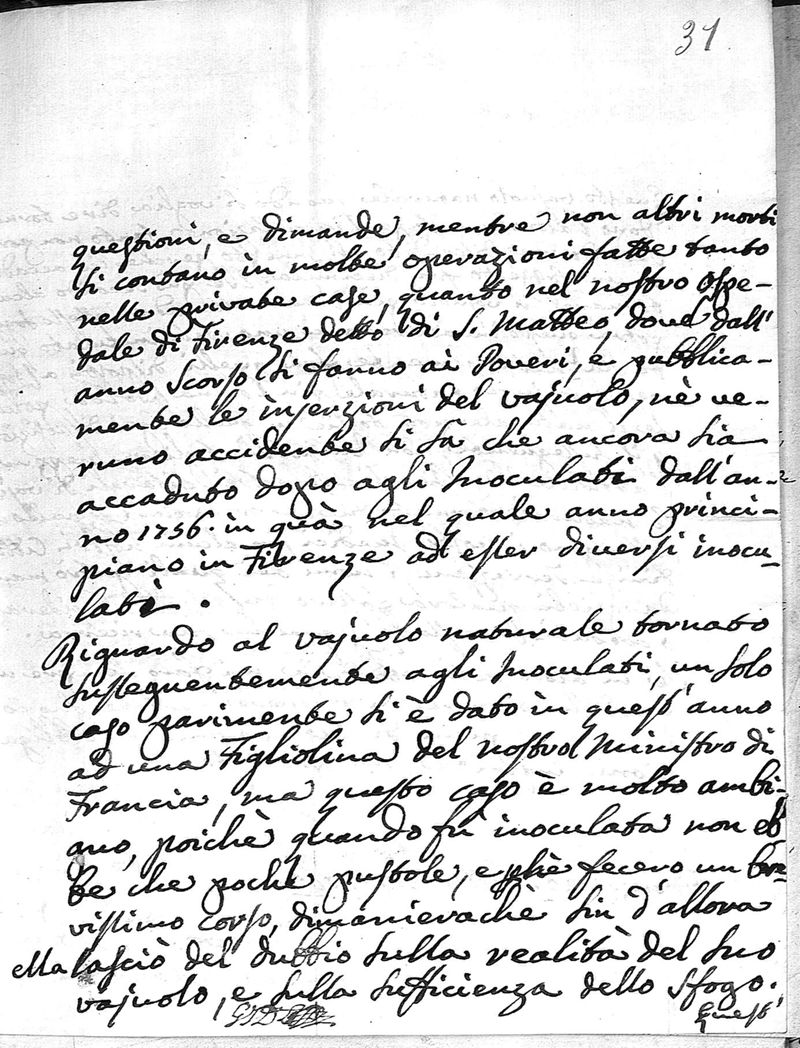 31
questioni, e dimande, mentre non altri morti
si contano in molte operazioni fatte tanto
nelle private case, quanto nel nostro Ospe-
dale di Firenze detto di S. Matteo, dove dall'
anno scorso si fanno ai Poveri, e pubblica-
mente le inserzioni del vajuolo, nè ve-
runo accidente si sà che ancora sia
accaduto dopo agli Inoculati dall'an-
no 1756. in quà nel quale anno princi-
piano in Firenze ad esser diversi inocu-
lati.
Riguardo al vajuolo naturale tornato
susseguentemente agli Inoculati, un solo
caso parimente si è dato in quest'anno
ad una Figliolina del nostro Ministro di
Francia, ma questo caso è molto ambi-
ano, poichè quando fù inoculata non eb
be che poche pustole, e fecero un bre-
vissimo corso, dimanierachè sin d'allora
ella lasciò del dubbio sulla realità del suo
vajuolo, e sulla sufficienza dello sfogo.
Quest'